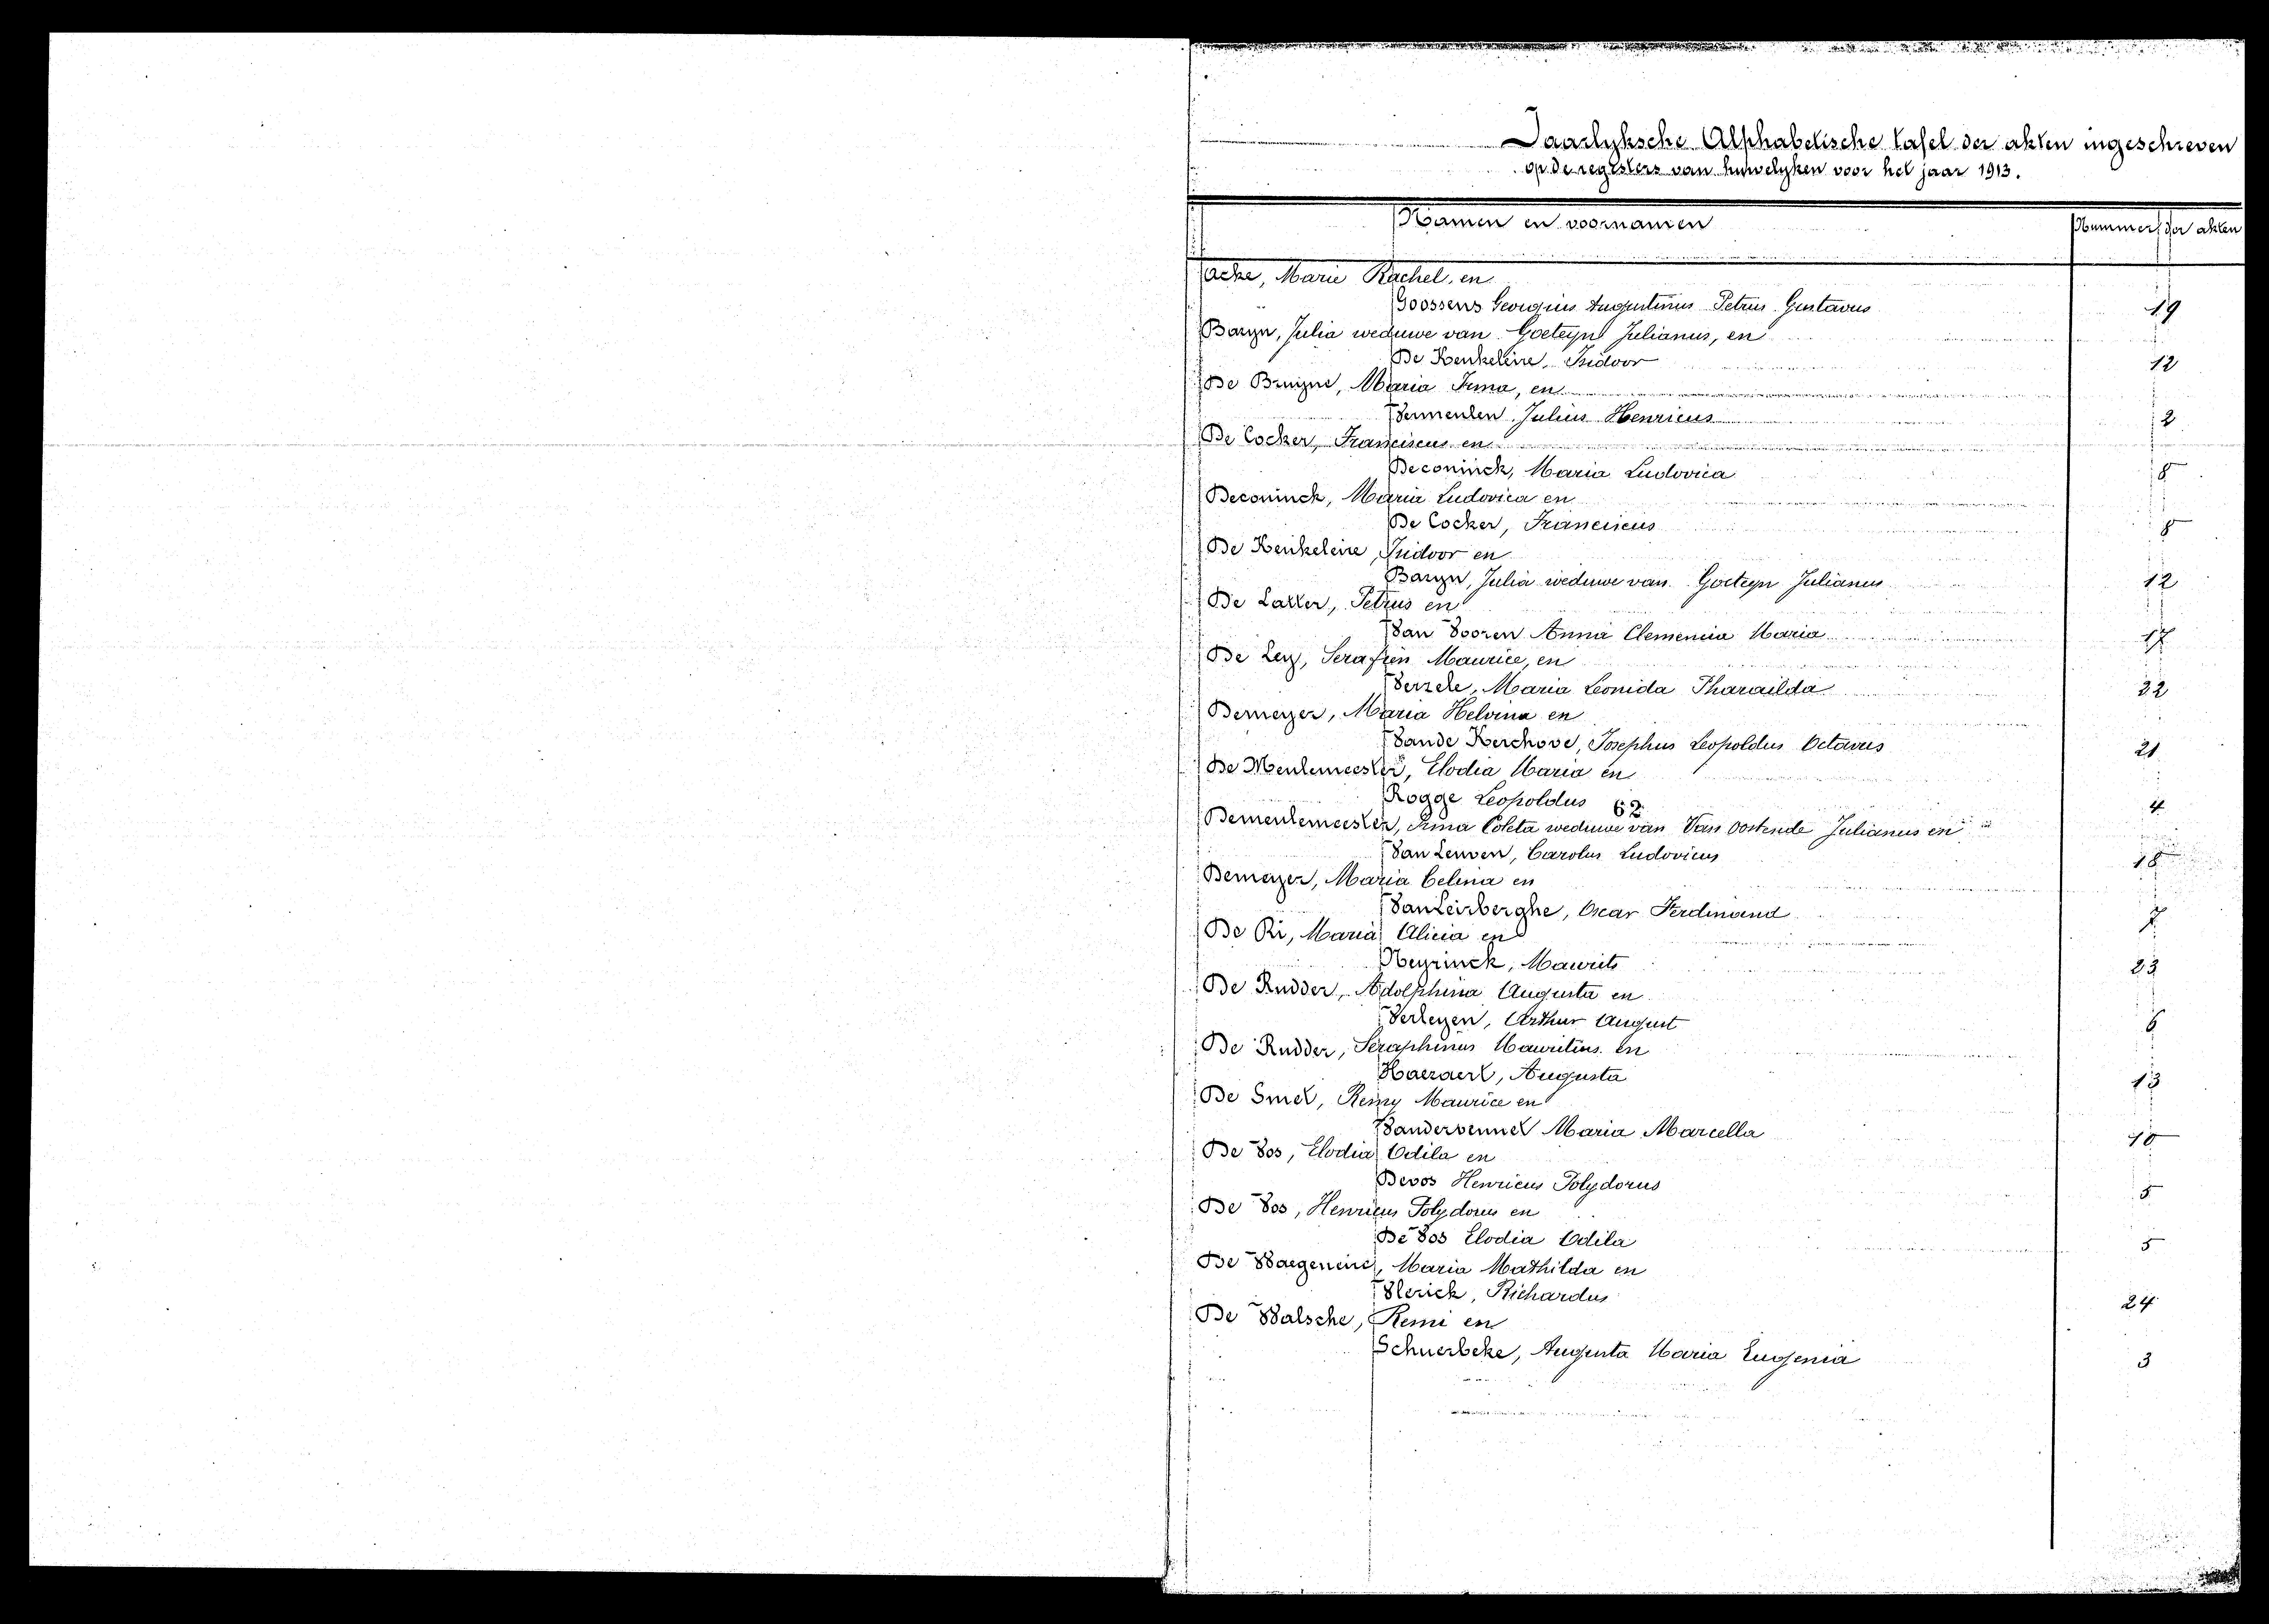 Jaarlyksche Alphabetische tafel der akten ingeschreven
op de registers van huwelyken voor het jaar 1913.
Namen en voornamen Nummers der akten
Acke, Marie Rachel, en
Goossens Georgius Augustinus Petrus Gustavus 19
Baryn, Julia weduwe van Goeteyn Julianus, en
De Keukeleire, Isidoor 12
De Bruyne, Maria Irma, en
Vermeulen Julius Henricus 2
De Cocker, Franciscus en
Deconinck, Maria Ludovica 8
Deconinck, Maria Ludovica en
De Cocker, Franciscus 8
De Keukeleire, Isidoor en
Baryn, Julia weduwe van Goeteyn Julianus 12
De Latter, Petrus en
Van Vooren Anna Clemencia Maria 17
De Ley, Serafien Maurice, en
Verzele, Maria Leonida Pharaïlda 22
Demeyer, Maria Helvina en
Vande Kerchove, Josephus Leopoldus Octavus 21
De Meulemeester, Elodia Maria en
Rogge Leopoldus 4
62
Demeulemeester, Irma Coleta weduwe van Van Oostende Julianus en
Van Leuven, Carolus Ludovicus 18
Demeyer, Maria Celina en
Van Leirberghe, Oscar Ferdinand 7
De Ri, Maria Alicia en
Neyrinck, Maurits 23
De Rudder, Adolphina Augusta en
Verleyen, Arthur August 6
De Rudder, Seraphinus Mauritius en
Haeraert, Augusta 13
De Smet, Remy Maurice en
Vandervennet Maria Marcella 10
De Vos, Elodia Odila en
Devos Henricus Polydorus 5
De Vos, Henricus Polydorus en
De Vos Elodia Odila 5
De Waegeneire, Maria Mathilda en
Vlerick, Richardus 24
De Walsche, Remi en
Schuerbeke, Augusta Maria Eugenia 3